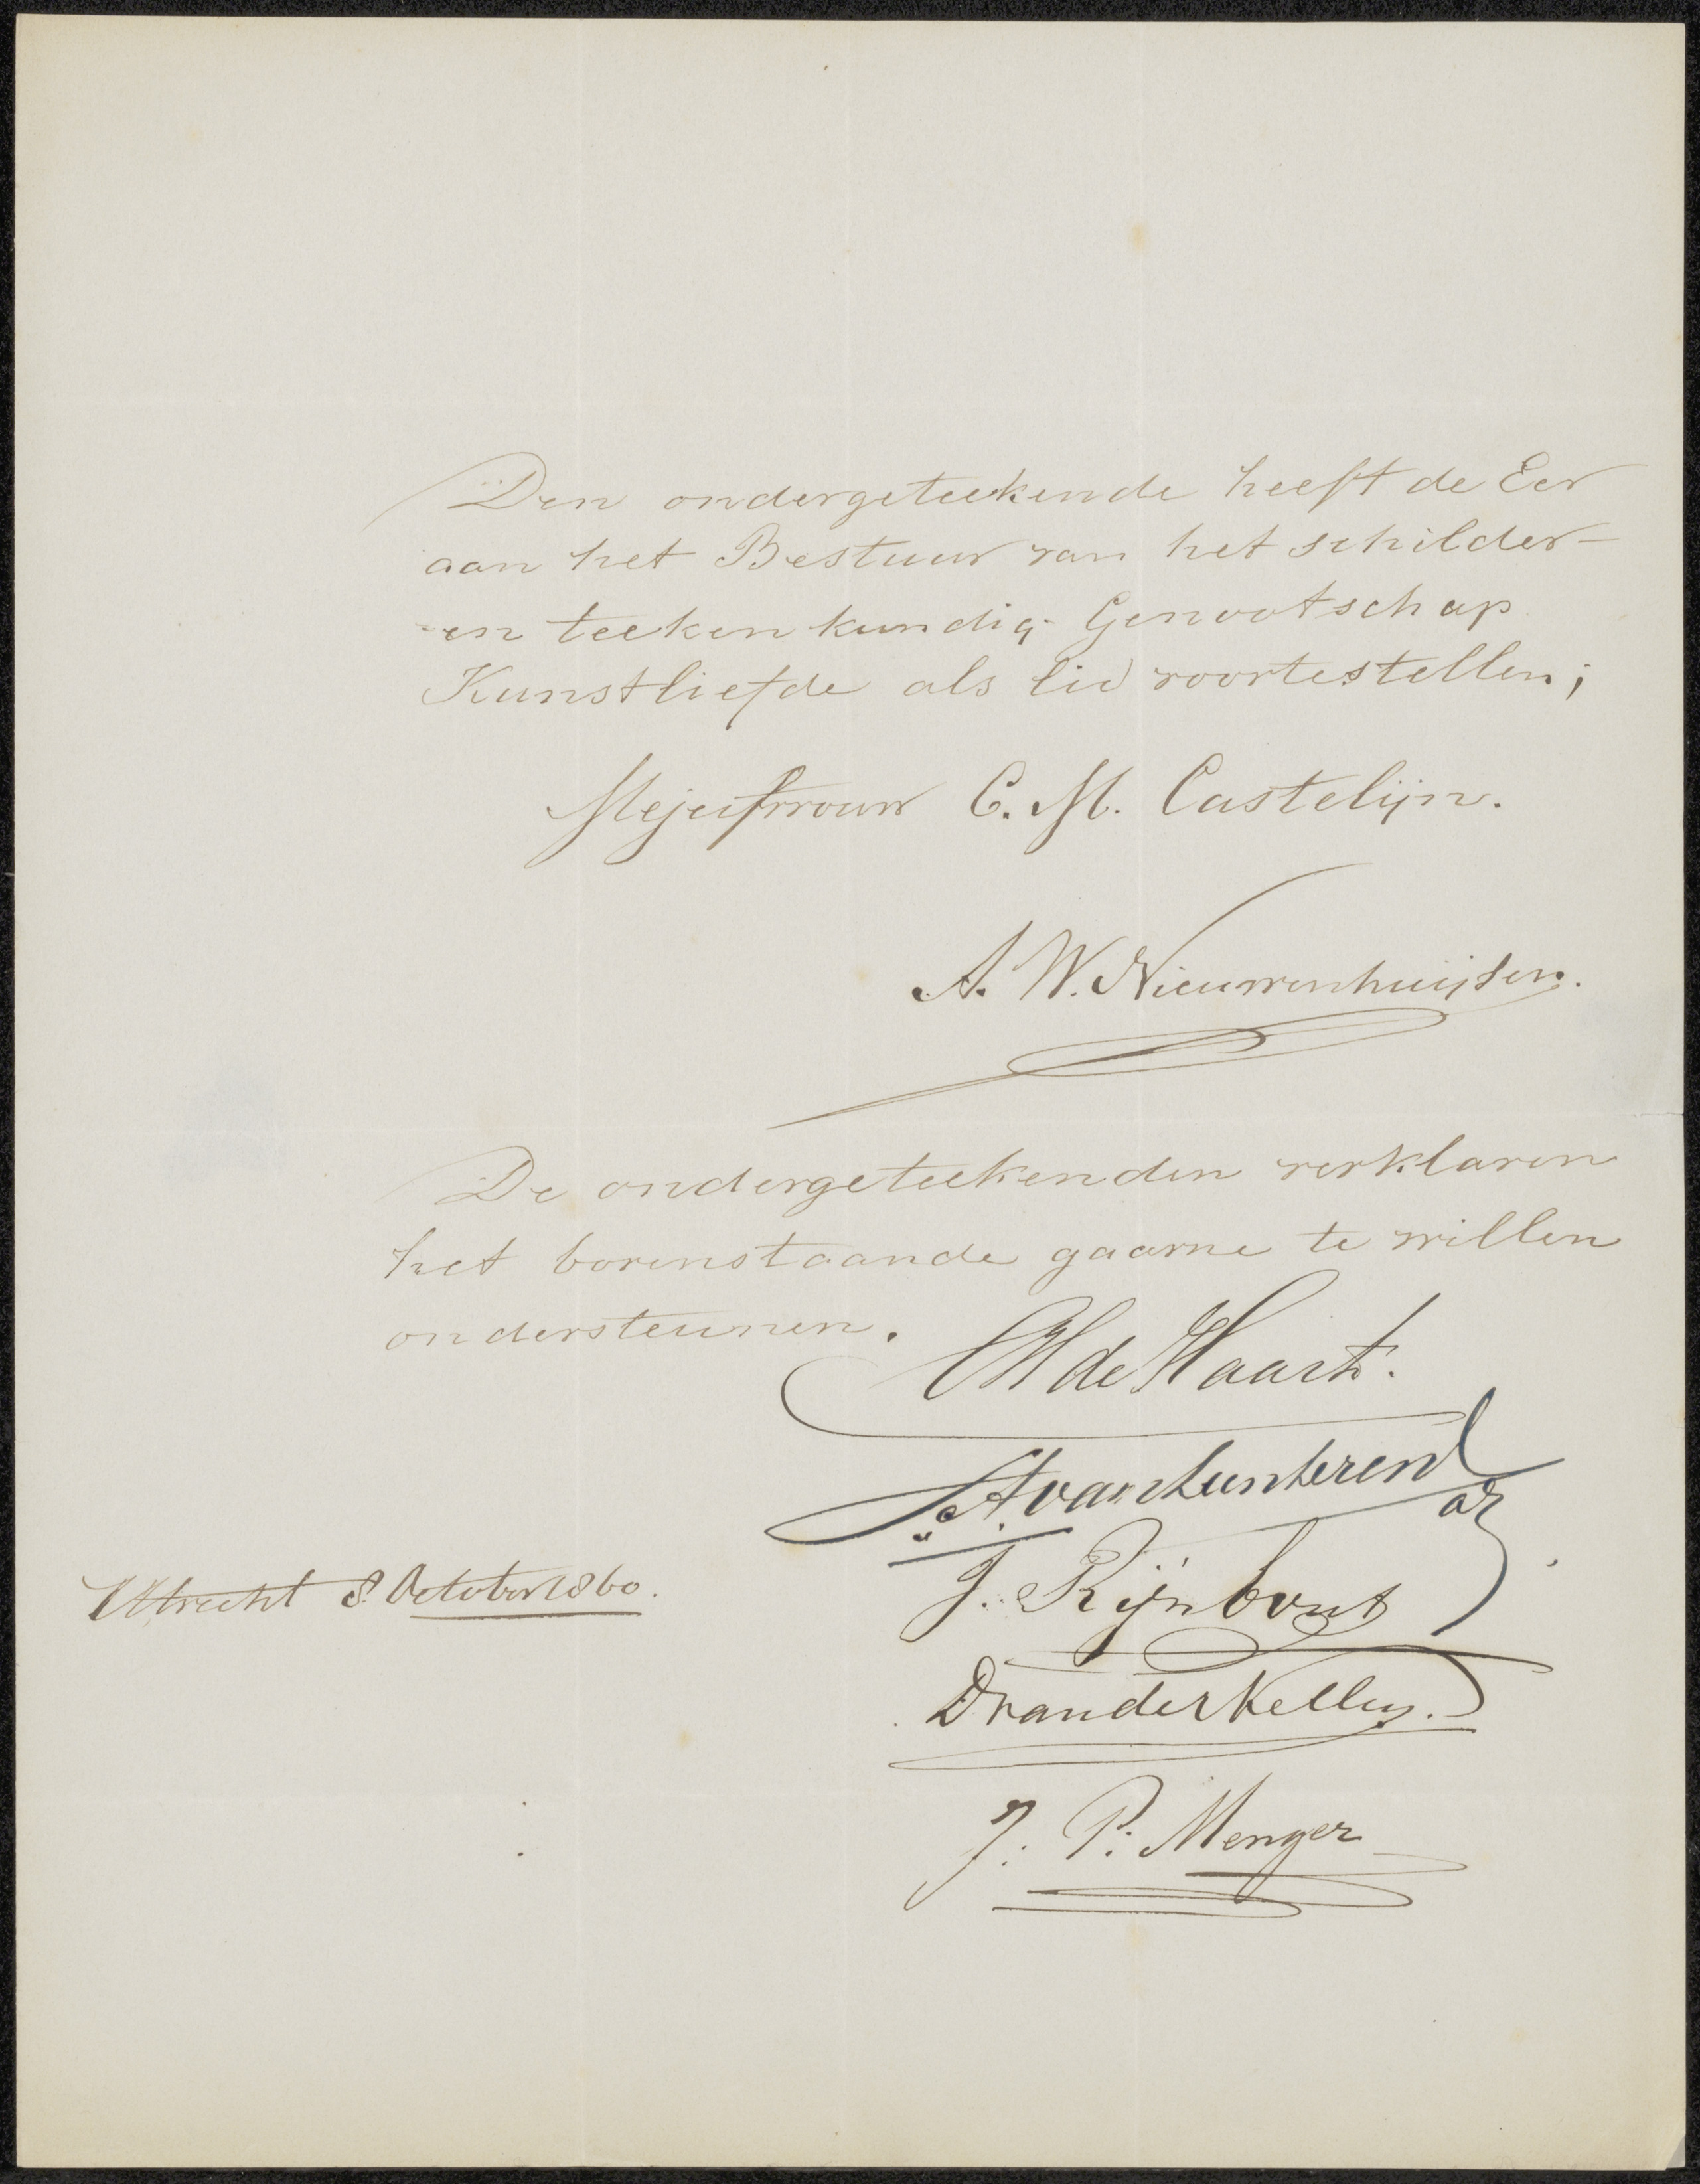 Den ondergeteekende heeft de Eer
aan het Bestuur van het schilder-
en teekenkundig Genootschap
Kunstliefde als lid voortestellen;
Mejufvrouw C. M. Castelijn.
A. W. Nieuwenhuijsen.
De ondergeteekenden verklaren
het bovenstaande gaarne te willen
ondersteunen.
de Haart.
van Lunteren
J. Rijnbout
Utrecht 8 October 1860.
D van der Kellen.
J. P. Menger